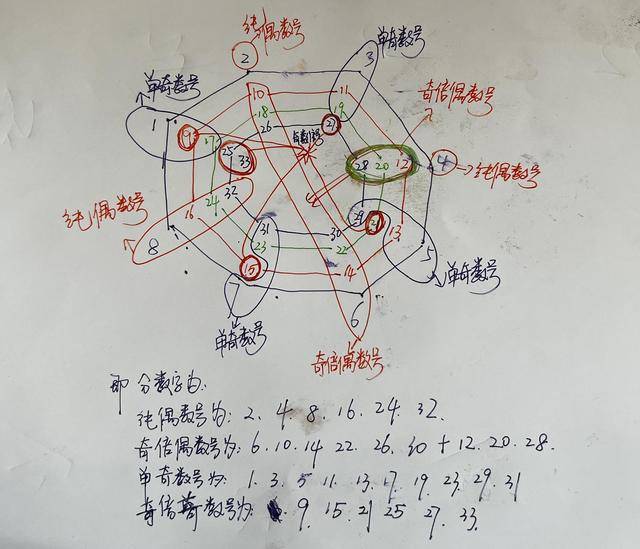 纯偶数号
2
单奇数号
3
单奇数号
奇倍偶数号
10
11
18
19
1
26
27
9
17
奇数倍号
25
33
28
20
12
4
纯偶数号
32
纯偶数号
24
16
29
21
31
30
13
8
23
22
5
15
14
单奇数号
7
6
单奇数号
奇倍偶数号
即分数字为:
纯偶数号为: 2. 4. 8. 16. 24. 32.
奇倍偶数号为: 6. 10. 14 22. 26. 30 + 12. 20. 28.
单奇数号为: 1. 3. 5 11. 13. 17. 19. 23. 29. 31
奇倍奇数号为: 9. 15. 21 25 27. 33.